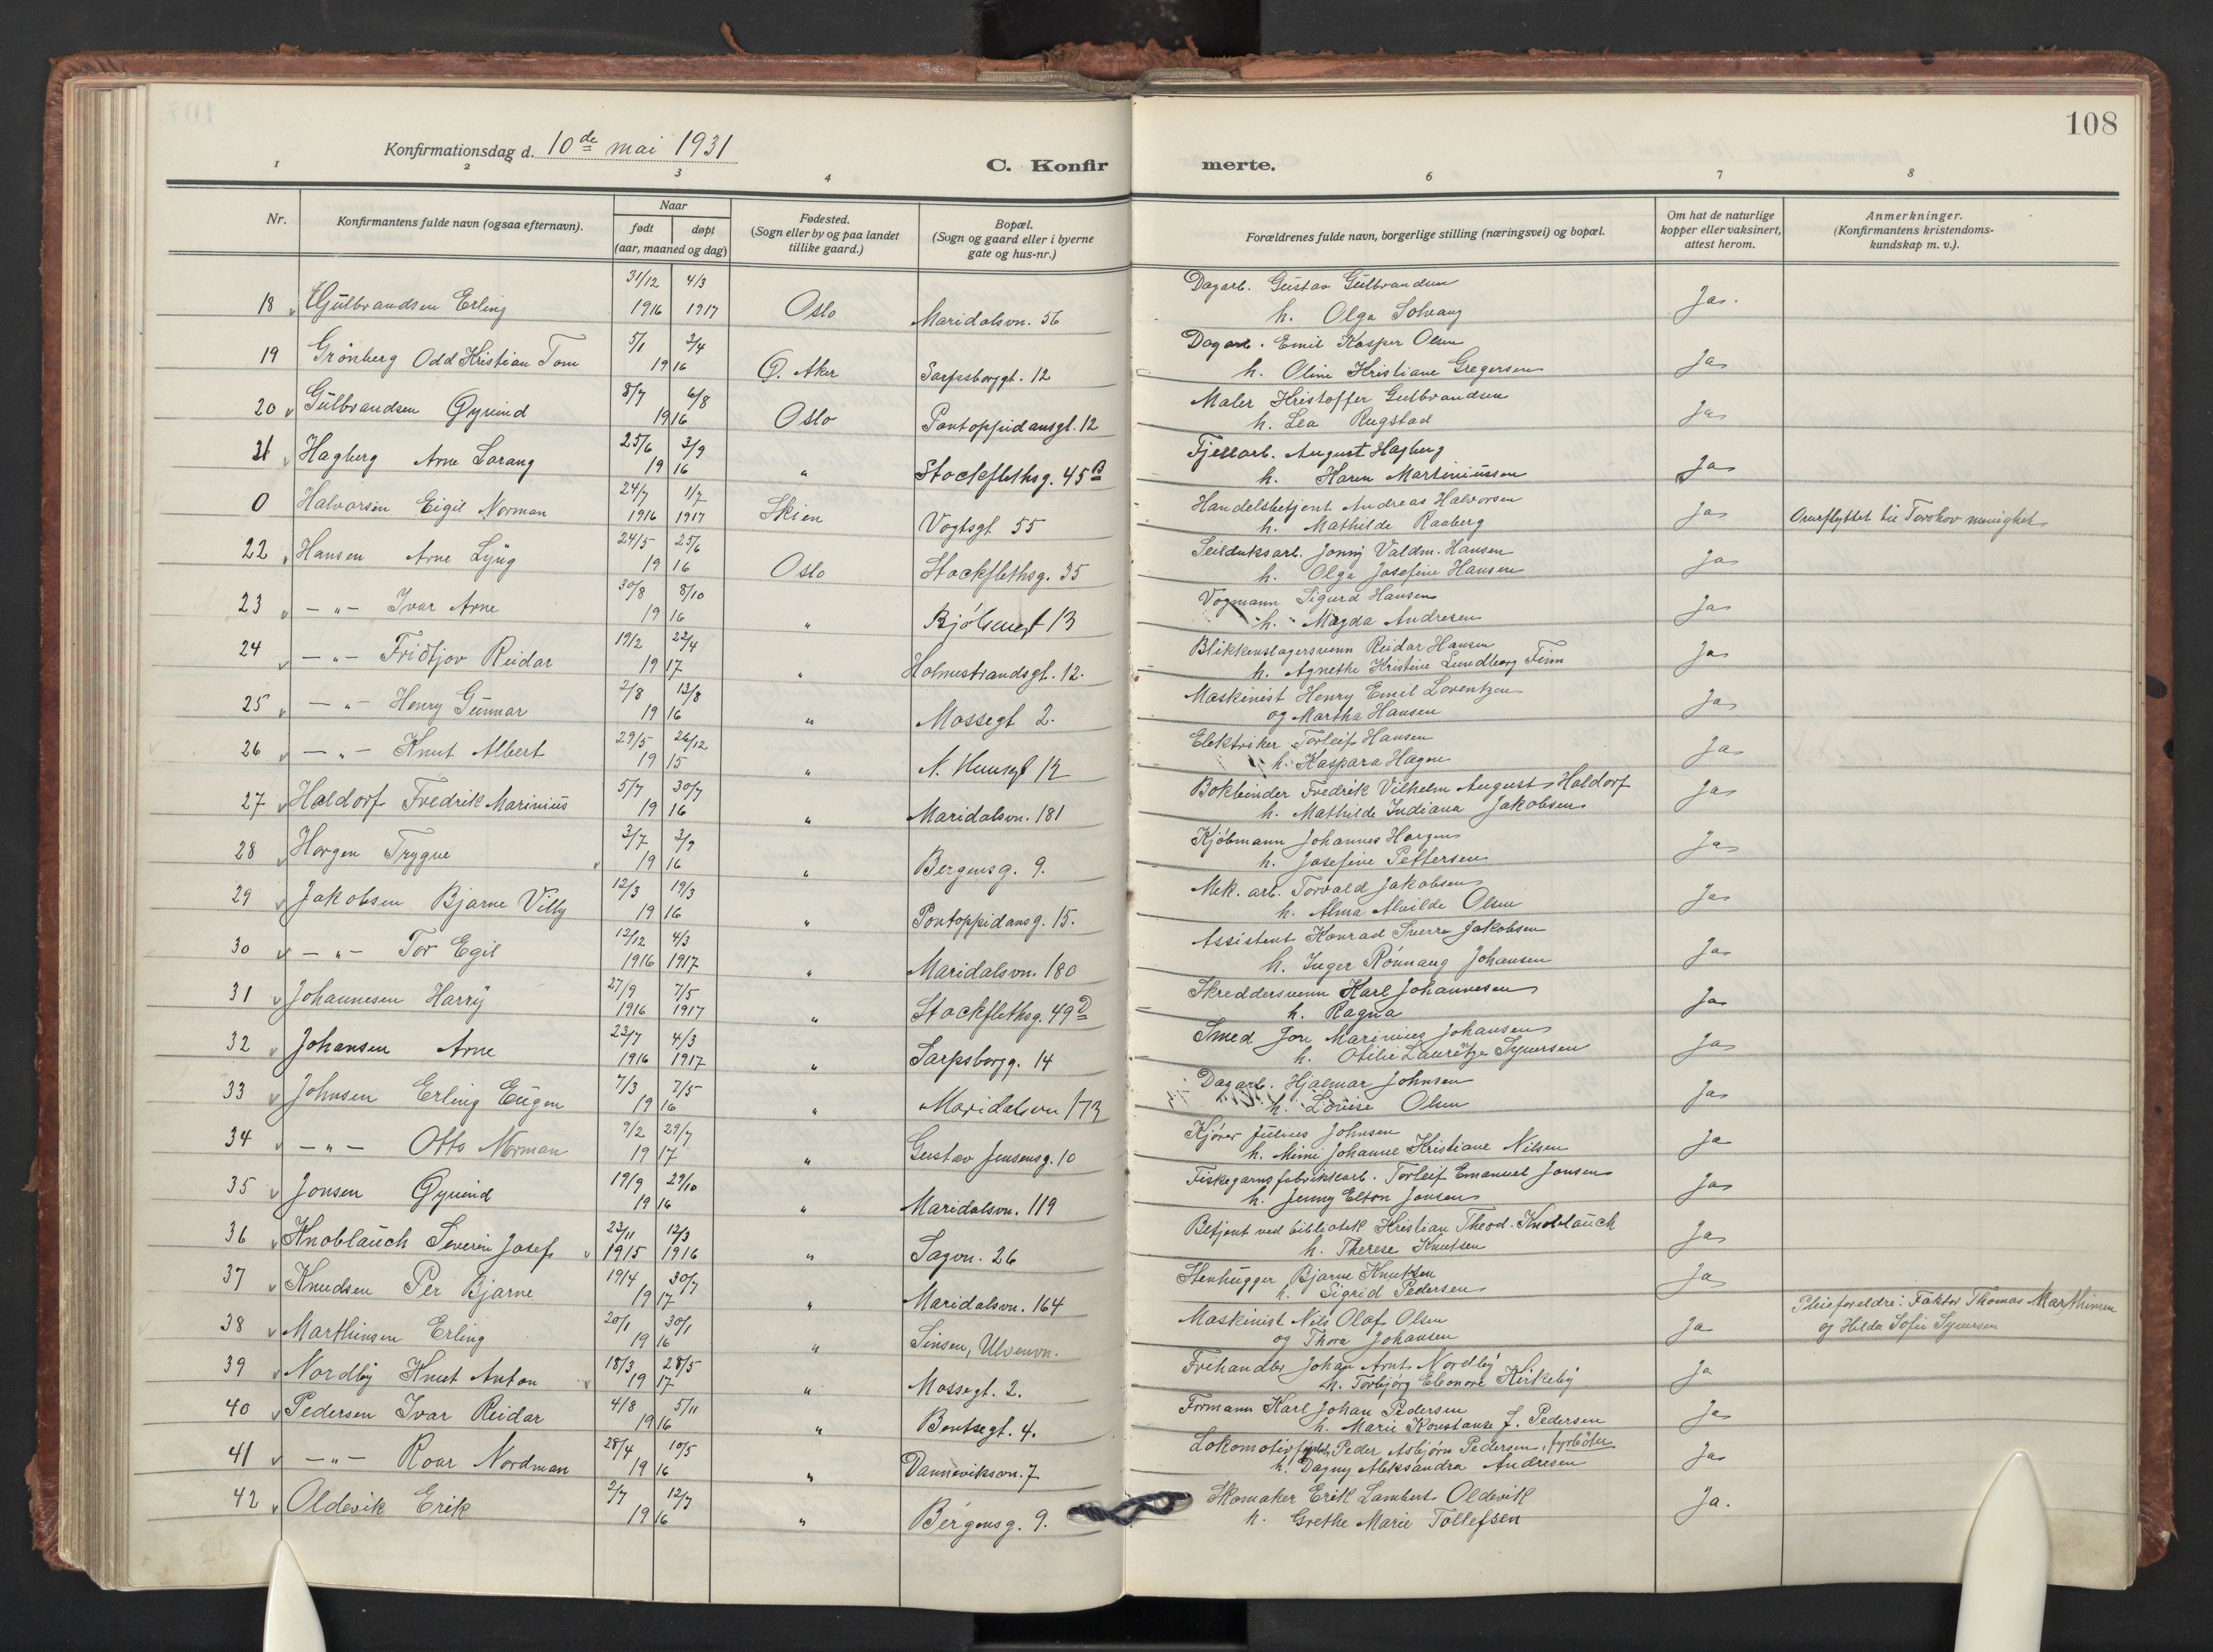 108
Konfirmationsdag d. 10de mai 1931
C. Konfir merte.
1 2 3 4 6 7 8
Nr.
Konfirmantens fulde navn (ogsaa efternavn).
Naar
født døpt
(aar, maaned og dag)
Fødested.
(Sogn eller by og paa landet
tillike gaard.)
Bopæl.
(Sogn og gaard eller i byerne
gate og hus-nr.)
Forældrenes fulde navn, borgerlige stilling (næringsvei) og bopæl.
Om hat de naturlige
kopper eller vaksinert,
attest herom.
Anmerkninger.
(Konfirmantens kristendoms-
kundskap m. v.).
31/12 4/3 Dagarb. Gustav Gulbrandsen
18 Gulbrandsen Erling 1916 1917 Oslo Maridalsvn. 56 h. Olga Solvang Ja.
5/1 2/4 Dagarb. Emil Kasper Olsen
19 Grönberg Odd Kristian Tom 1916 Ø. Aker Sarpsborggt. 12 h. Oline Kristiane Gregersen Ja
8/7 6/8 Maler Kristoffer Gulbrandsen
20 Gulbrandsen Øyvind 1916 Oslo Pontoppidansgt. 12 h. Lea Rugstad Ja
25/6 3/9 Fjellarb. August Hagberg
21 Hagberg Arne Lorang 1916 " Stockflethsg. 45B h. Karen Martiniussen Ja
24/7 1/7 Handelsbetjent Andreas Halvorsen
0 Halvorsen Eigil Norman 1916 1917 Skien Vogtsgt 55 h. Mathilde Raaberg Ja Overflyttet til Torshov menighet
24/5 25/6 Seilduksarb. Jonny Valdm. Hansen
22 Hansen Arne Lyng 1916 Oslo Stockflethsg. 35 h. Olga Josefine Hansen Ja
30/8 8/10 Vogmann Sigurd Hansen
23 -"- Ivar Arne 1916 " Bjølsengt 13 h. Magda Andresen Ja
19/2 22/4 Blikkenslagersvenn Reidar Hansen
24 -"- Fridtjov Reidar 1917 " Holmestrandsgt. 12. h. Agnethe Kristine Lundberg Finn Ja
2/8 13/8 Maskinist Henry Emil Lorentzen
25 -"- Henry Gunnar 1916 " Mossegt 2. og Martha Hansen Ja
29/5 26/12 Elektriker Torleif Hansen
26 -"- Knut Albert 1915 " h. Kaspara Hagen Ja
5/7 30/7 Bokbinder Fredrik Vilhelm August Haldorf
27 Haldorf Fredrik Marinius 1916 " Maridalsvn. 181 h. Mathilde Indiana Jakobsen Ja
2/7 3/9 Kjöbmann Johannes Horgen
28 Horgen Trygve 1916 " Bergensg. 9. h. Josefine Pettersen Ja
12/3 19/3 Mek. arb. Torvald Jakobsen
29 Jakobsen Bjarne Villy 1916 " Pontoppidansg. 15. h. Alma Alvilde Olsen Ja
12/12 4/3 Assistent Konrad Sverre Jakobsen
30 -"- Tor Egil 1916 1917 " Maridalsvn. 180 h. Inger Rönnaug Johansen Ja
27/9 7/5 Skreddersvenn Karl Johannesen
31 Johannesen Harry 1916 1917 " Stockflethsg. 49D h. Ragna Ja
23/7 4/3 Smed Jon Marinius Johansen
32 Johansen Arne 1916 1917 " Sarpsborgg. 14 h. Otilie Lauritza Syversen Ja
7/3 7/5 Dagarb. Hjalmar Johnsen
33 Johnsen Erling Eugen 1916 " Maridalsvn 173 h. Lovise Olsen Ja
9/2 29/7 Kjörer Julius Johnsen
34 -"- Otto Norman 1917 " Gustav Jensensg. 10 h. Mimi Johanne Kristiane Nilsen Ja
19/9 29/10 Fiskegarnsfabrikkarb. Torleif Emanuel Jonsen
35 Jonsen Øyvind 1916 " Maridalsvn. 119 h. Jenny Elton Jonsen Ja
23/11 12/3 Betjent ved bibliotek Kristian Theod. Knoblauch
36 Knoblauch Severin Josef 1915 1916 " Sagvn. 26 h. Therese Knutsen Ja
19/4 30/7 Stenhugger Bjarne Knutsen
37 Knudsen Per Bjarne 1917 " Maridalsvn. 164 h. Sigrid Pedersen Ja
20/1 30/1 Maskinist Nils Olaf Olsen Pleieforeldre: Faktor Thomas Marthinsen
38 Marthinsen Erling 1916 " Sinsen, Ulvenvn. og Thora Johansen Ja og Hilda Sofie Syversen
18/3 28/5 Frihandler Johan Arnt Nordby
39 Nordby Knut Anton 1917 " Mossegt. 2. h. Torbjørg Eleonore Kirkeby Ja
4/8 5/11 Formann Karl Johan Pedersen
40 Pedersen Ivar Reidar 1916 " Bentsegt. 4. h. Marie Konstanse J. Pedersen Ja
28/4 10/5 Peder Asbjørn Pedersen, fyrbøter
41 -"- Roar Nordman 1916 " Danneviksvn. 7 h. Dagny Aleksandra Andresen Ja
2/7 12/7 Skomaker Erik Lambert Oldevik
42 Oldevik Erik 1916 " Bergensg. 9. h. Grethe Marie Tollefsen Ja.